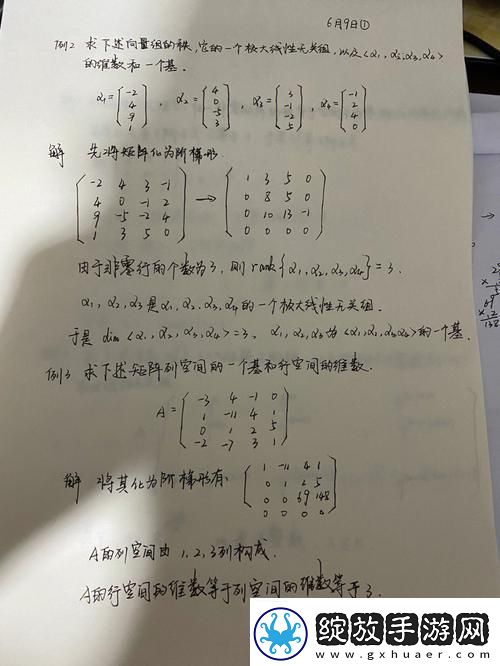 6月9日①
例2 求下述向量组的秩,它的一个极大线性无关组,以及<α₁,α₂,α₃,α₄>
的维数和一个基.
α₁=(-2 4 9 1), α₂=(4 0 -5 3), α₃=(3 -1 -2 5), α₄=(-1 2 4 0)
解 先将矩阵化为阶梯形.
-2 4 3 -1 → 1 3 5 0
4 0 -1 2 0 8 5 0
9 -5 -2 4 0 10 13 -1
1 3 5 0 0 0 0 0
由于非零行的个数为3,则rank{α₁,α₂,α₃,α₄}=3.
α₁,α₂,α₃是α₁,α₂,α₃,α₄的一个极大线性无关组.
于是 dim<α₁,α₂,α₃,α₄>=3, α₁,α₂,α₃为<α₁,α₂,α₃,α₄>的一个基.
例3 求下述矩阵列空间的一个基和行空间的维数.
A=
-3 4 -1 0
1 -11 4 1
0 1 2 5
-2 -7 3 1
解 将其化为阶梯形有
1 -11 4 1
0 1 2 5
0 0 69 148
0 0 0 0
A的列空间由 1,2,3列构成.
A的行空间的维数等于列空间的维数等于3.
绽放手游网
www.gxhuaer.com